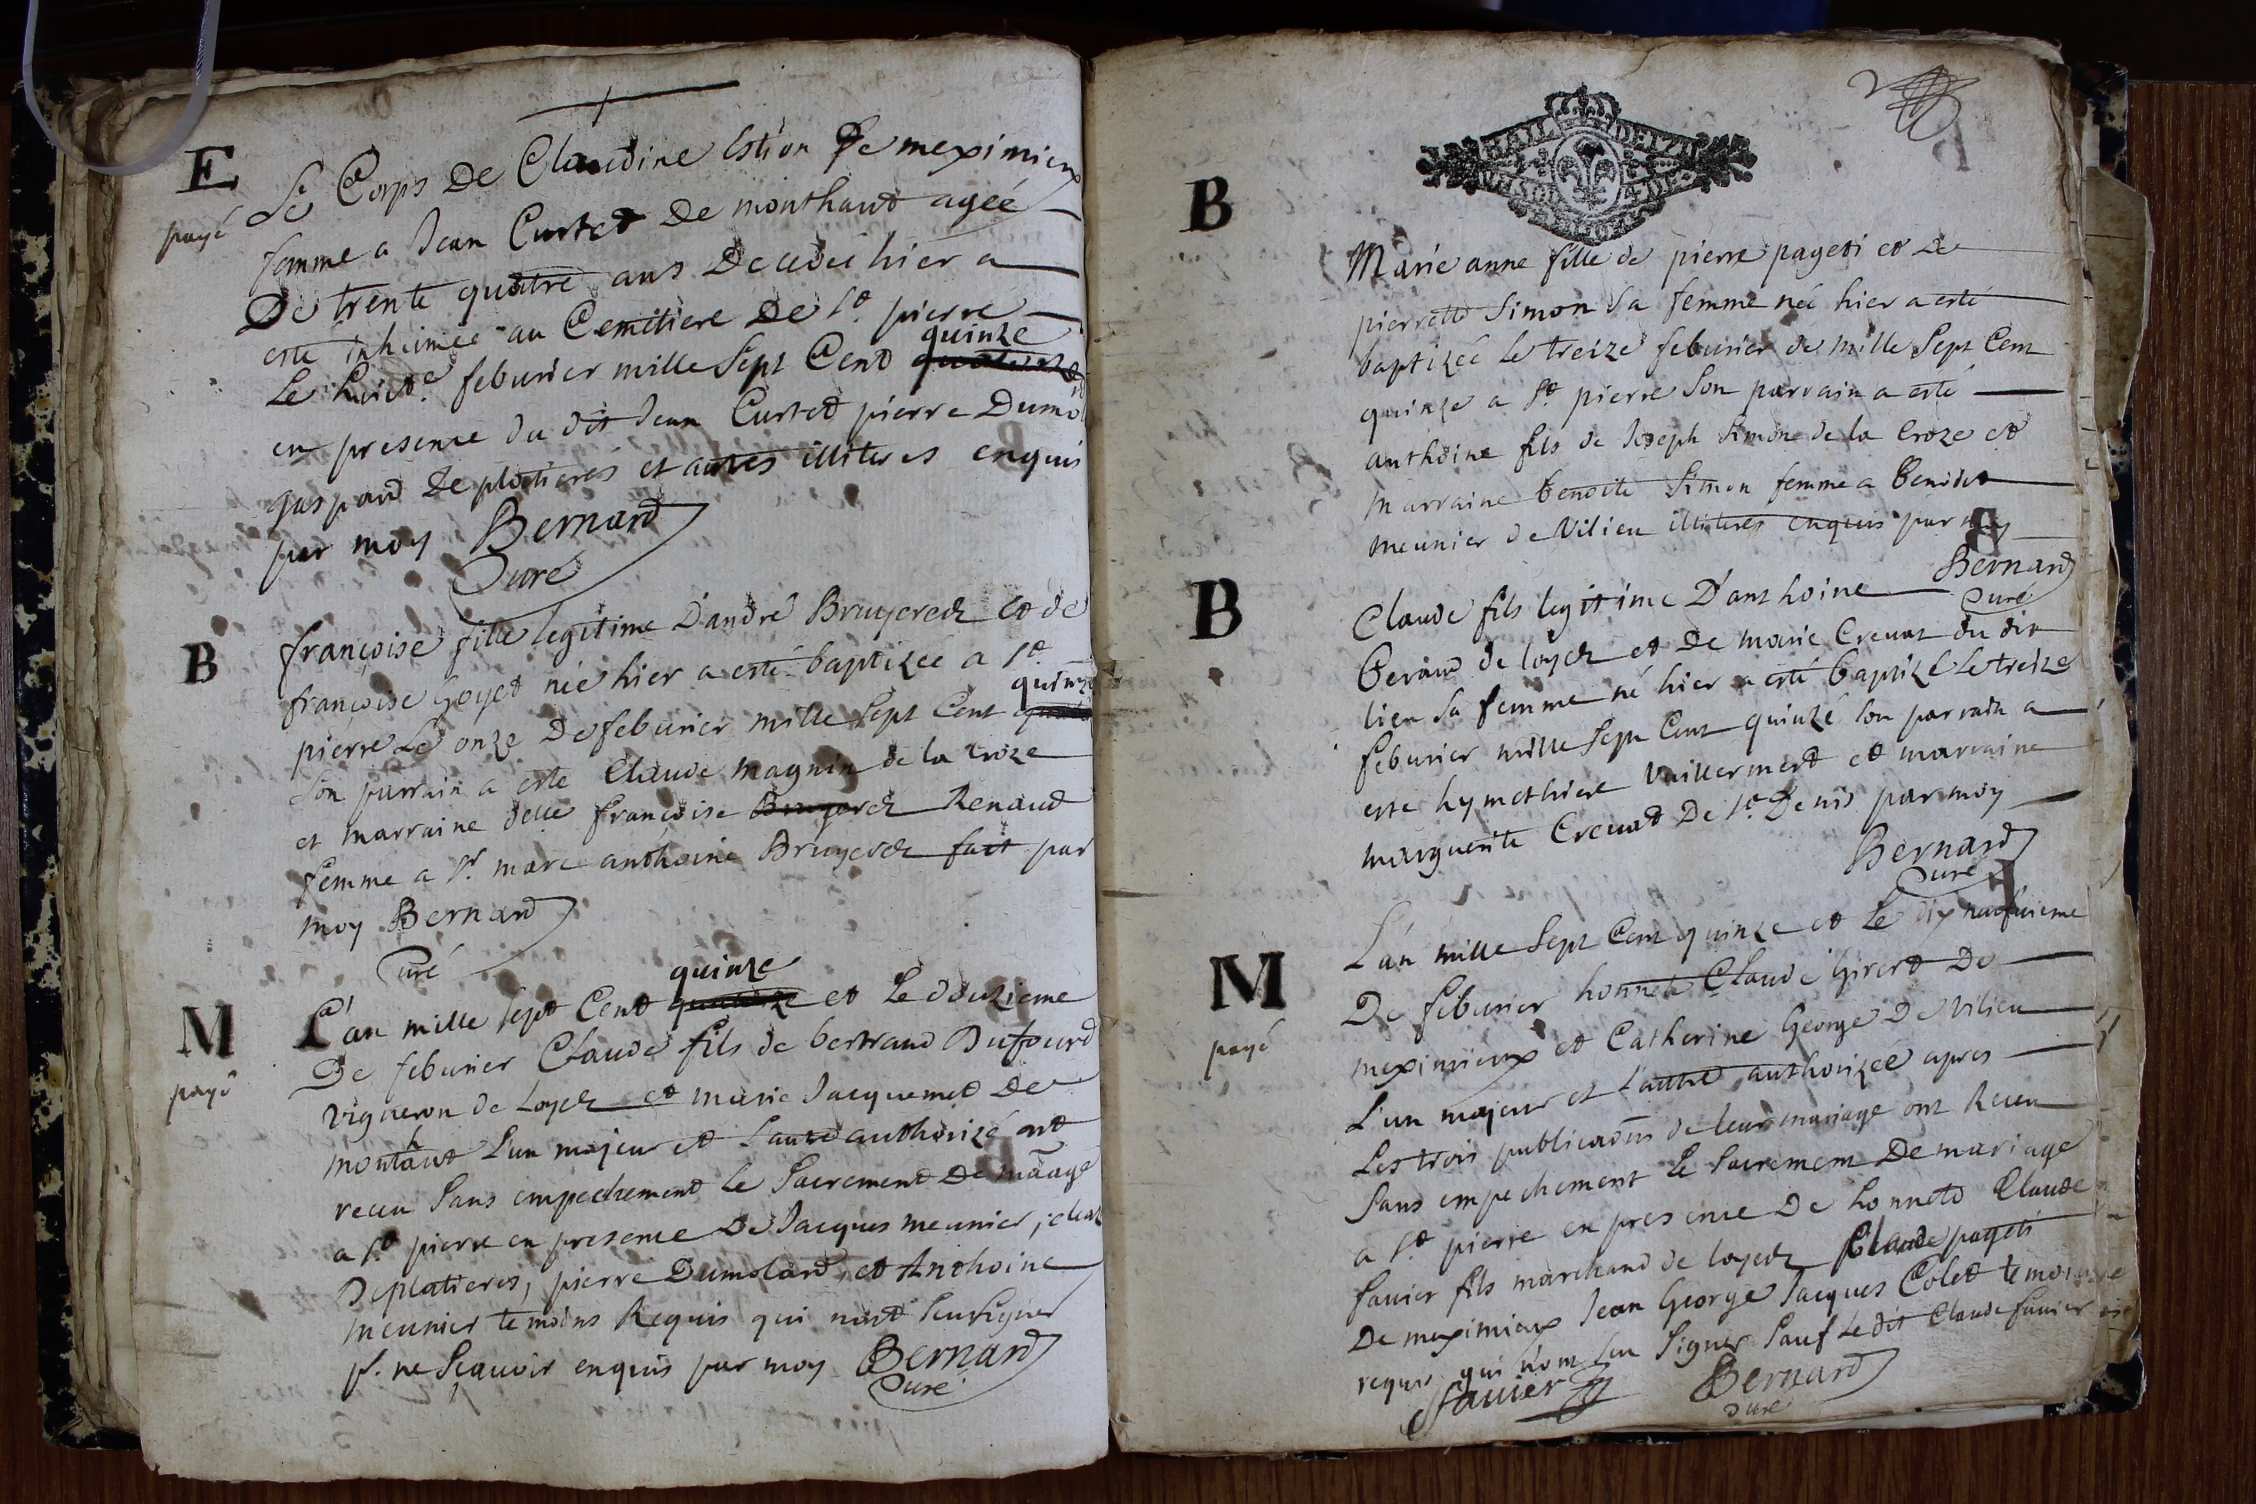 E
payé
Le Corps De Claudine Estion De meximieux
femme a Jean Curtet De monthaut agéé
De trente quatre ans Decedéé hier a
esté inhumée au Cemitiere De St. pierre
quinze
Le huict.e feburier mille Sept Cent quatorze
en presence du dit Jean Curtet pierre Dumol
gaspard Deplatieres et autres illiteres enquis
par moy Bernard
Curé
B
françoise fille legitime D'andré Bruyerez et de
françoise Goyet néé hier a esté baptizéé a St.
quinze
pierre Le onze De feburier mille Sept Cent
Son parrain a esté Claude magnin de la croze
et marraine delle françoise Bruyerez Renaud
femme a Sr. marc anthoine Bruyerez fait par
moy Bernard
Curé
quinze
M
payé
L'an mille sept Cent quatorze et Le douzieme
De feburier Claude fils de bertrand Dufourd
vigneron de Loyez et marie Jacquemet De
h
montaut L'un majeur et L'autre authorizé ont
receu Sans empechement Le Sacrement De maage
a St. pierre en presence De Jacques meunier,
Deplatieres, pierre Dumolard, et Anthoine
meunier temoins Requis qui n'ont Seu signer
p. ne Scauoir enquis par moy Bernard
Curé
DEIZI
B
Marie anne fille de pierre pageti et de
pierrette Simon Sa femme néé hier a esté
baptizéé Le treize feburier de mille Sept Cent
quinze a St. pierre Son parrain a esté
anthoine fils de Joseph Simon de la Croze et
marraine benoite Simon femme a benoist
meunier de Vilieu illiteres enquis par moy
Bernard
Curé
B
Claude fils legitime D'anthoine
beraud de loyez et De marie Creuat du dit
lieu Sa femme né hier a esté baptizé Le treize
feburier mille Sept Cent quinze Son parrain a
esté hymethiere Vuillermert et marraine
marguerite Creuat De St. Denis par moy
Bernard
Curé
M
payé
L'an mille Sept Cent quinze et Le dix neufuieme
De feburier honnete Claude Girert De
meximieux et Catherine George De Vilieu
L'un majeur et L'autre authorizéé apres
Les trois publicaons de leur mariage ont Receu
Sans empechement Le Sacrement De mariage
a St. pierre en presence De honnete Claude
fauier fils marchand de loyez Claude pageti
De meximieux Jean George Jacques Colet temoins
requis qui n'ont Seu Signer Sauf Le dit Claude fauier
fauier Bernard
Curé